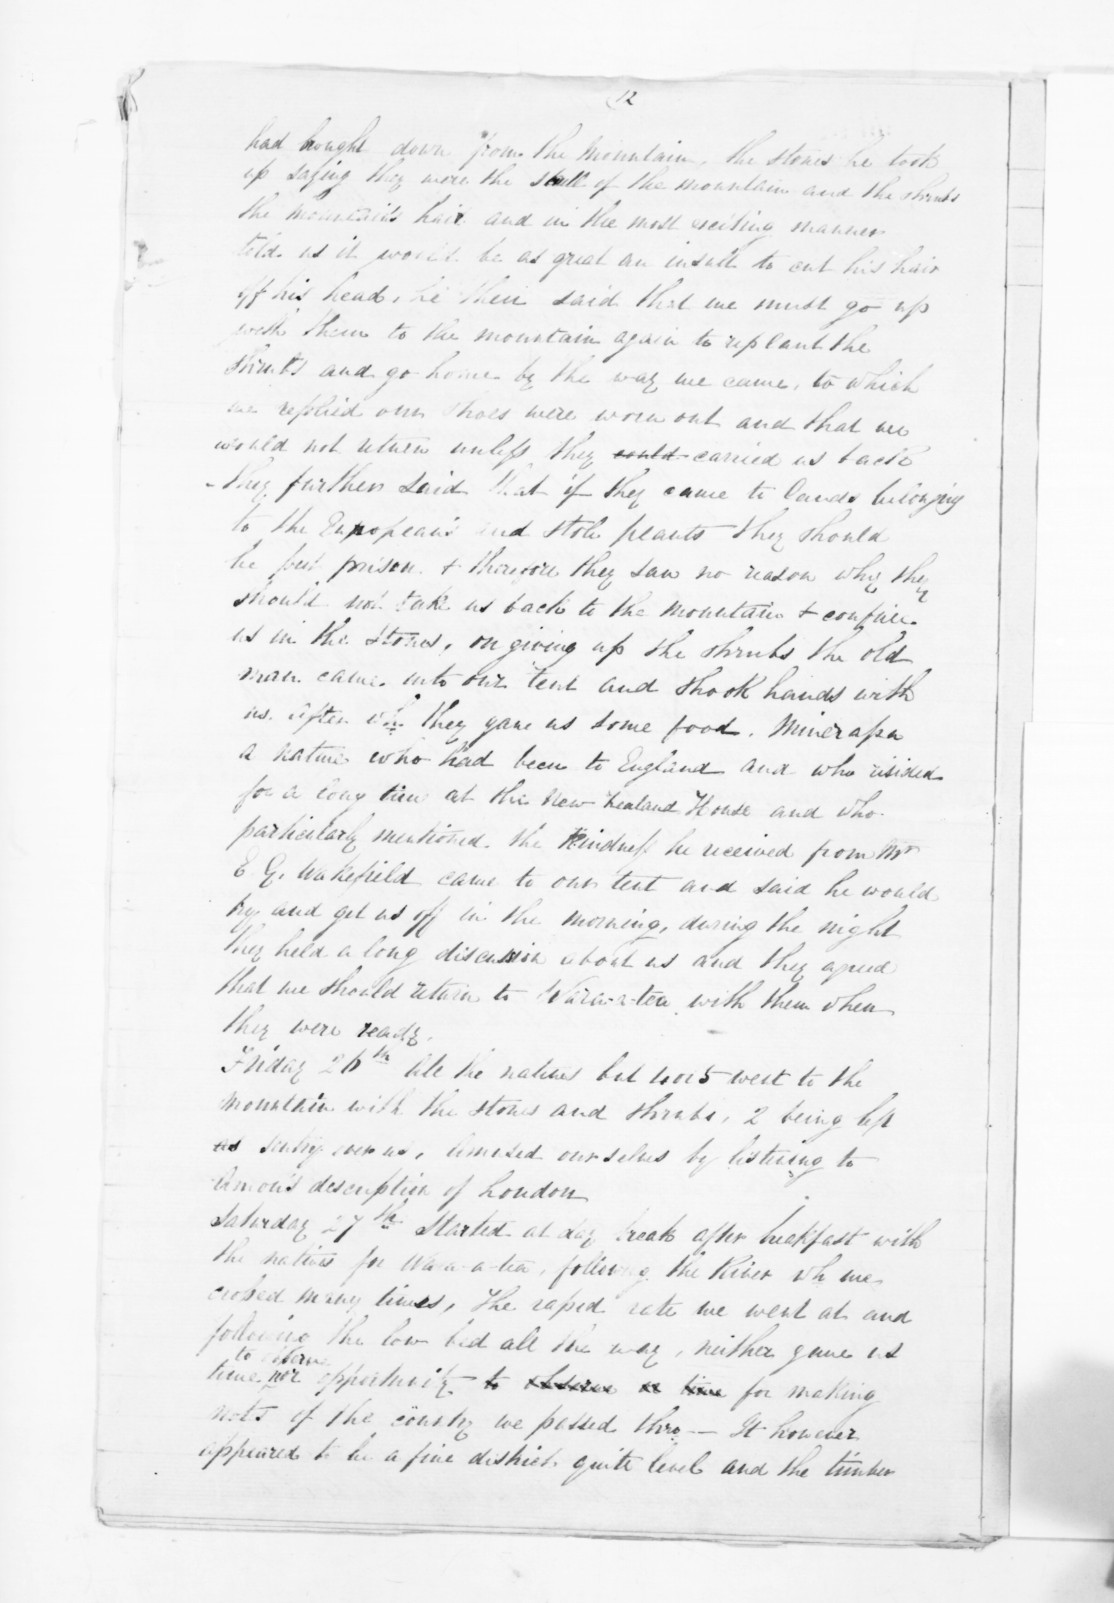 12
had bought down from the Mountain, the stones he took
up saying they were the skull of the mountain and the shrubs
the mountain's hair and in the most exciting manner
told us it would be as great an insult to cut his hair
off his head, he then said that we must go up
with them to the mountain again to replant the
shrubs and go home by the way we came, to which
we replied our shoes were worn out and that we
would not return unless they could carried us back
They further said that if they came to lands belonging
to the Europeans and stole plants they should
be put prison & therefore they saw no reason why they
should not take us back to the mountain & confine
us in the stones, on giving up the shrubs the old
man came into our tent and shook hands with
us after wh they gave us some food. Minerapa
a native who had been to England and who resided
for a long time at the New Zealand House and who
particularly mentioned the kindness he received from Mr
E G. Wakefield came to our tent and said he would
try and get us off in the morning, during the night
they held a long discussion about us and they agreed
that we should return to Waru-a-tea with them when
they were ready.
Friday 26th All the natives but 4 or 5 went to the
Mountain with the stones and shrubs, 2 being left
as sentry over us, Amused ourselves by listening to
description of London
Saturday 27th Started at day break after breakfast with
the natives for, following the River wh we
crossed many times, The rapid rate we went at and
following the low bed all the way, neither gave us
to observe
time nor opportunity to observe or time for making
notes of the country we passed thro — It however
appeared to be a fine district quite level and the timber